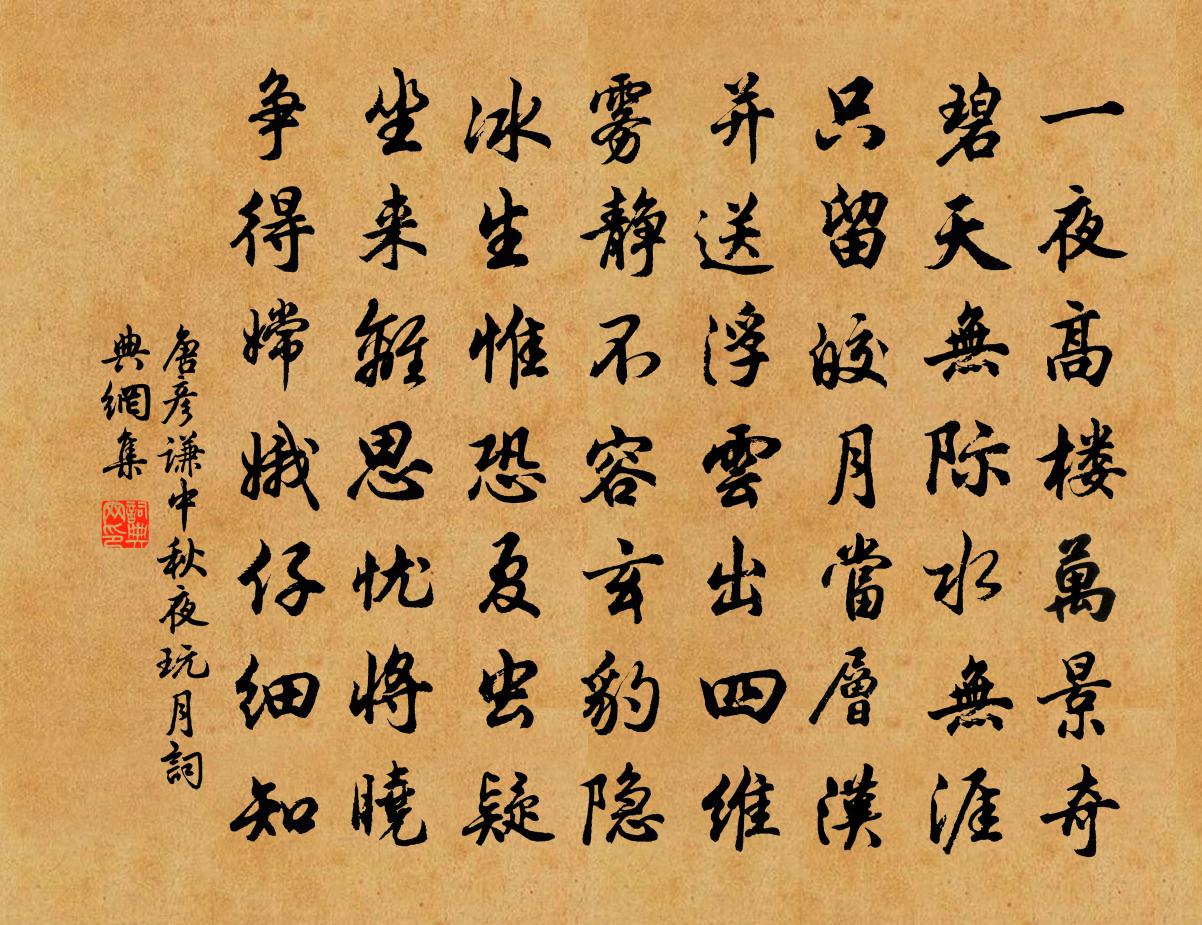 一夜高楼萬景奇
碧天無际水無涯
只留皎月當層漢
并送浮雲出四維
雾静不容玄豹隐
冰生惟恐夏虫疑
坐来離思忧将曉
争得嫦娥仔细知
唐彦谦中秋夜玩月詞
典網集
詞典
网印